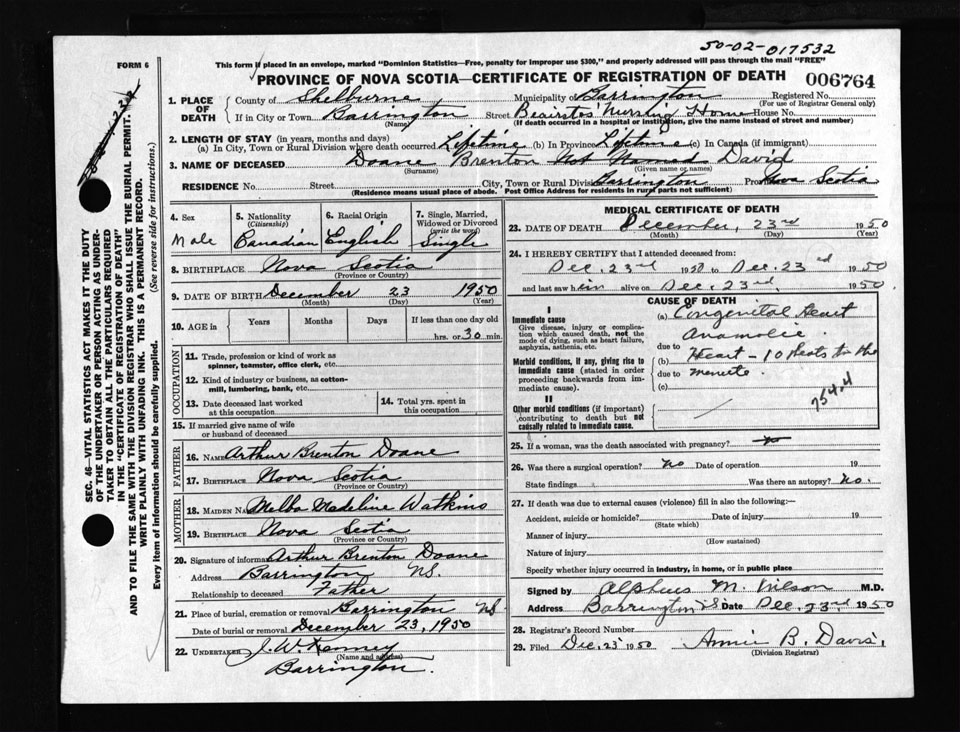 50-02-017532
FORM 6
This form if placed in an envelope, marked "Dominion Statistics—Free, penalty for improper use $300," and properly addressed will pass through the mail "FREE"
PROVINCE OF NOVA SCOTIA—CERTIFICATE OF REGISTRATION OF DEATH 006764
1. PLACE OF DEATH County of Shelburne Municipality of Barrington Registered No.
(For use of Registrar General only)
If in City or Town Barrington Street Nursing Home House No.
(Name) (If death occurred in a hospital or institution, give the name instead of street and number)
2. LENGTH OF STAY (in years, months and days)
(a) In City, Town or Rural Division where death occurred Lifetime (b) In Province Lifetime (c) In Canada (if immigrant)
3. NAME OF DECEASED Doane Brenton Not Named David
(Surname) (Given name or names)
RESIDENCE No. Street City, Town or Rural Divis Barrington Pro Nova Scotia
(Residence means usual place of abode. Post Office Address for residents in rural parts not sufficient)
4. Sex 5. Nationality (Citizenship) 6. Racial Origin 7. Single, Married, Widowed or Divorced (write the word)
Male Canadian English Single
8. BIRTHPLACE Nova Scotia
(Province or Country)
9. DATE OF BIRTH December 23 1950
(Month) (Day) (Year)
10. AGE in Years Months Days If less than one day old
hrs. or 30 min.
OCCUPATION
11. Trade, profession or kind of work as spinner, teamster, office clerk, etc.
12. Kind of industry or business, as cotton-mill, lumbering, bank, etc.
13. Date deceased last worked at this occupation
14. Total yrs. spent in this occupation
15. If married give name of wife or husband of deceased
FATHER
16. NAME Arthur Brenton Doane
17. BIRTHPLACE Nova Scotia
(Province or Country)
MOTHER
18. MAIDEN NA Melba Madeline Watkins
19. BIRTHPLACE Nova Scotia
(Province or Country)
20. Signature of informa Arthur Brenton Doane
Address Barrington NS.
Relationship to deceased Father
21. Place of burial, cremation or removal Barrington NS
Date of burial or removal December 23, 1950
22. UNDERTAKER J. W. Kenney
(Name and address)
Barrington.
MEDICAL CERTIFICATE OF DEATH
23. DATE OF DEATH December, 23rd 1950
(Month) (Day) (Year)
24. I HEREBY CERTIFY that I attended deceased from:
Dec. 23rd 1950 to Dec. 23rd 1950
and last saw him alive on Dec. 23rd. 1950.
CAUSE OF DEATH
I
Immediate cause
Give disease, injury or complication which caused death, not the mode of dying, such as heart failure, asphyxia, asthenia, etc.
(a) Congenital Heart Anamolie
due to
Morbid conditions, if any, giving rise to immediate cause (stated in order proceeding backwards from immediate cause).
(b) Heart - 10 beats to the
due to menute.
(c)
754.4
II
Other morbid conditions (if important) contributing to death but not causally related to immediate cause.
25. If a woman, was the death associated with pregnancy? no
26. Was there a surgical operation? no Date of operation 19
State findings Was there an autopsy? no.
27. If death was due to external causes (violence) fill in also the following:—
Accident, suicide or homicide? Date of injury 19
(State which)
Manner of injury
(How sustained)
Nature of injury
Specify whether injury occurred in industry, in home, or in public place
Signed by Alpheus M. Wilson M.D.
Address Barrington NS Date Dec. 23rd 1950
28. Registrar's Record Number
29. Filed Dec. 23 1950 Annie B. Davis,
(Division Registrar)
SEC. 46—VITAL STATISTICS ACT MAKES IT THE DUTY
OF THE UNDERTAKER OR PERSON ACTING AS UNDER-
TAKER TO OBTAIN ALL THE PARTICULARS REQUIRED
IN THE "CERTIFICATE OF REGISTRATION OF DEATH"
AND TO FILE THE SAME WITH THE DIVISION REGISTRAR WHO SHALL ISSUE THE BURIAL PERMIT.
WRITE PLAINLY WITH UNFADING INK. THIS IS A PERMANENT RECORD.
Every item of information should be carefully supplied. (See reverse side for instructions.)